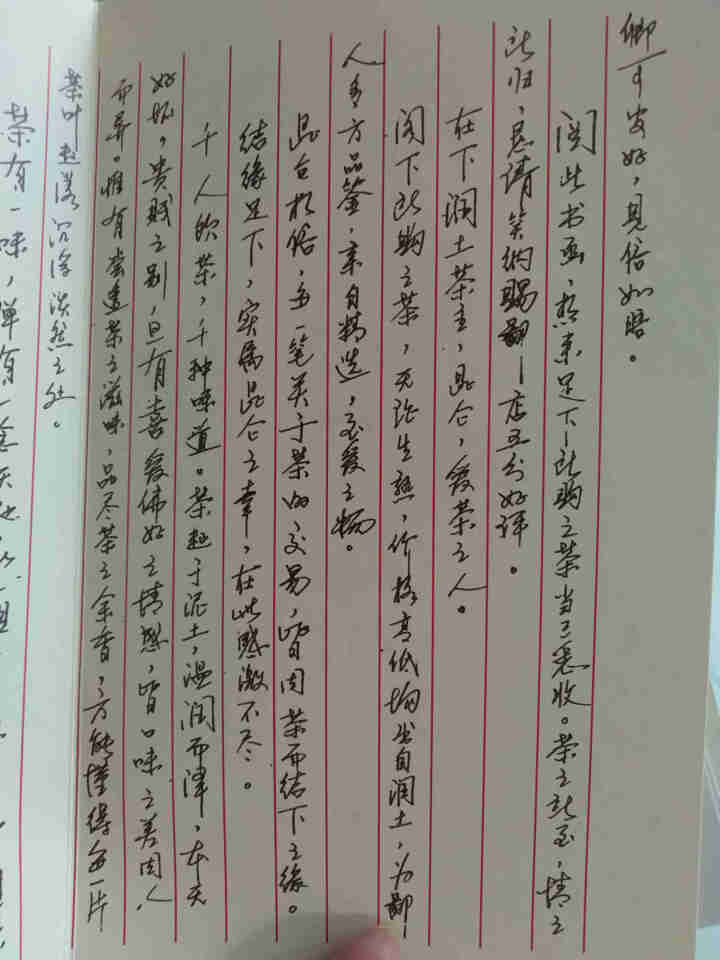 卿可安好，见信如晤。
阅此书函，想来足下所购之茶当已悉收。茶之所至，情之
所归，恳请笑纳赐鄙店五分好评。
在下润土茶主，昆仑，爱茶之人。
阁下所购之茶，无论生熟，价格高低均出自润土，为鄙
人多方品鉴，亲自精选，至爱之物。
昆仑于俗，每一笔关于茶的交易，皆因茶而结下之缘。
结缘足下，实属昆仑之幸，在此感激不尽。
千人饮茶，千种味道。茶起于泥土，温润而泽，本无
好坏，贵贱之别，但有喜爱偏好之情愁，皆口味之差因人
而异。惟有尝遍茶之滋味，品尽茶之余香，方能懂得每一片
茶叶起落沉浮淡然之处。
茶有一味，